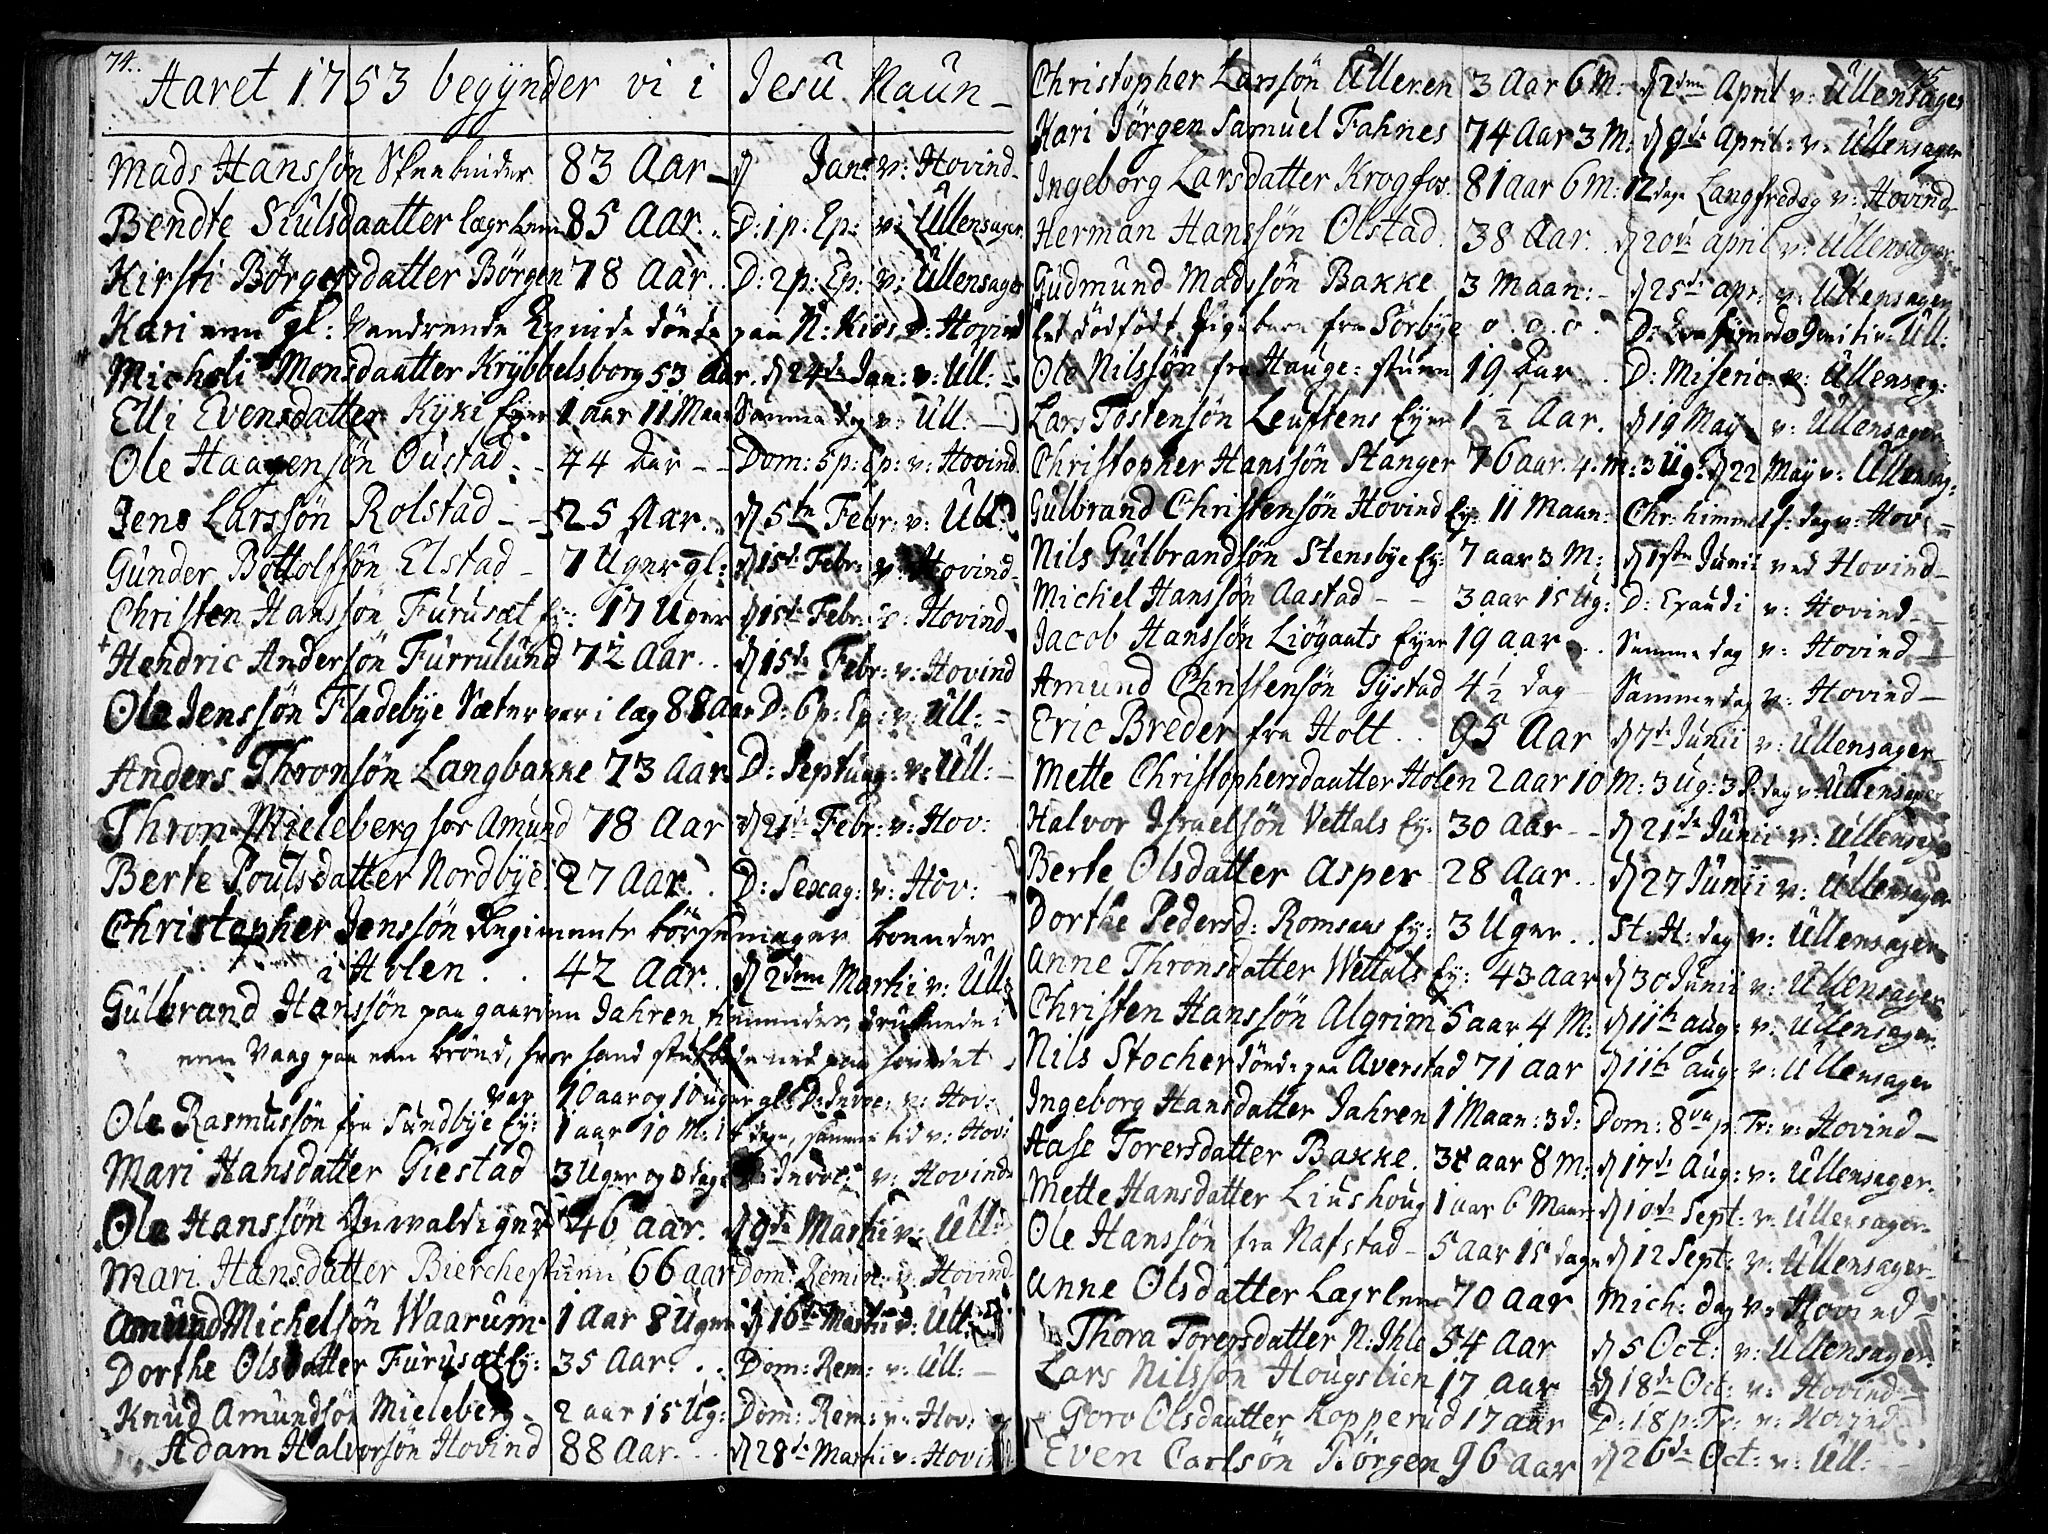 74.
Aaret 1753 begÿnder vi i Jesu Naun -
Mads Hanssøn 83 Aar - d Jan: v: Hovind -
Bendte Siulsdaatter lægslem 85 Aar. . D: 1 p: Ep: v: Ullensager.
Kirsti Børgersdatter Børgen 78 Aar. . D: 2 p: Ep: v: Ullensager
Kari een gl: Vandrende Qvinde døde paa N: Kiøs v: Hovind
Micheli Monsdaatter Krÿbbelsborg 53 Aar. d 24de Jan: v: Ull: -
Elli Evensdatter Kÿki Eyer 1 aar 11 Maan Samme dag v: Ull: -
Ole Haagensøn Oustad. - 44 Aar - - Dom: 5 p: Ep: v: Hovind.
Jens Larssøn Rolstad - - 25 Aar. . d 5te Febr: v: Ull:
Gunder Bottolfsøn Elstad - 7 Uger gl: d 15de Febr: v: Hovind -
Christen Hanssøn Furusæt Ey: 17 Uger d 15de Febr: v: Hovind -
+ Hendric Andersøn Furrulund 72 Aar. . d 15de Febr: v: Hovind
Ole Jenssøn Fladebÿe Sæter var i læg 88 Aar D: 6 p: Ep: v: Ull: -
Anders Thronsøn Langbakke 73 Aar D: Septuag: v: Ull: -
Thron Mieleberg hos Amund 78 Aar d 21de Febr: v: Hov:
Berte Poulsdatter Nordbÿe 27 Aar. . D: Sexag: v: Hov:
Christopher Jenssøn Regiments bøssemager boende
i Holen . . 42 Aar. . d 2den Martii v: Ull:
Gulbrand Hanssøn paa gaarden Jahren, druknede i
een Vaag paa een brønd, hvor hand stubte ned paa hovedet
var 10 aar og 10 uger gl: D: Invoc: v: Hov:
Ole Rasmussøn fra Sundbÿe Ey: 1 aar 10 M: 14 dage, samme tid v: Hov:
Mari Hansdatter Giestad 3 Uger og 3 dage D: Invoc: v: Hovind
Ole Hanssøn 46 aar. d 9de Martii v: Ull:
Mari Hansdatter Bierchestuen 66 aar Dom: Remin: v: Hovind
Amund Michelsøn Waarum 1 Aar 8 Uger d 16de Martii v: Ull:
Dorthe Olsdatter Furusæt Ey: 35 Aar. . . Dom: Rem: v: Ull: -
Knud Amundsøn Mieleberg - 2 aar 15 Ug: Dom: Rem: v: Hov:
Adam Halvorsøn Hovind 88 Aar. . . d 28de Martii v: Hovind
75
Christopher Larssøn Ulleren 3 Aar 6 M: d 2den April v: Ullensager
Kari Jørgen Samuel Fahnes 74 Aar 3 M: d 9de April: v: Ullensager
Ingeborg Larsdatter Krogfos. 81 aar 6 M: 12 dage Langfredag v: Hovind -
Herman Hanssøn Olstad. 38 Aar. . d 20de april v: Ullensager -
Gudmund Madssøn Bakke 3 Maan: - d 25de apr: v: Ullensager
Eet dødfødt Pigebarn fra Sørbÿe o . o . o . D: Qvasimodo Genitii v: Ull:
Ole Nilssøn fra Hauge: stuen 19 Aar. . D: Miseric: v: Ullensag:
Lars Tostensøn Leuftens Eyer 1 ½ Aar. d 19 May v: Ullensager
Christopher Hanssøn Stanger 76 aar. 4 M: 3 Ug: d 22 May v: Ullensag:
Gulbrand Christensøn Hovind Ey: 11 Maan: Chr: himmelf: dag v: Hov: -
Nils Gulbrandsøn Stensbÿe Ey: 7 aar 3 M: d 1ste Junii ved Hovind -
Michel Hanssøn Aastad - - 3 aar 15 Ug: D: Exaudi v: Hovind -
Jacob Hanssøn Liøgaats Eyer 19 aar . . Samme dag v: Hovind -
Amund Christensøn Gÿstad 4 ½ dag - Samme dag v: Hovind -
Eric Breder fra Holt . . 95 Aar d 7de Junii v: Ullensager -
Mette Christophersdaatter Holen 2 aar 10 M: 3 Ug: 3 P: dag v: Ullensager
Halvor Israelsøn Vettals Ey: 30 aar - - d 21de Junii v: Ullensager
Berte Olsdatter Asper 28 Aar. . d 27 Junii v: Ullensager
Dorthe Pedersd: Romsaas Ey: 3 Uger. . St: H: dag v: Ullensager
Anne Thronsdatter Wettals Ey: 43 aar d 30 Junii v: Ullensager
Christen Hanssøn Algrim 5 aar 4 M: d 11te aug: v: Ullensager.
Nils Stocher døde paa Averstad 71 aar d 11te aug: v: Ullensager
Ingeborg Hansdatter Jahren 1 Maan: 3 d: Dom: 8va p: Tr: v: Hovind -
Aase Torersdatter Bakke. 38 aar 8 M: d 17de Aug: v: Ullensager.
Mette Hansdatter Liushoug 1 aar 6 Maan d 10de Sept: v: Ullensager -
Ole Hanssøn fra Nafstad - 5 aar 15 dage d 12 Sept: v: Ullensager -
Anne Olsdatter Lægslem 70 aar Mich: dag v: Hovind -
Thora Torersdatter N: Ihle 54 aar d 5 Oct: v: Ullensager.
Lars Nilssøn Hougslien 17 aar - d 18de Oct: v: Hovind -
Goro Olsdaatter Kopperud 17 aar D: 18 p: Tr: v: Hovind
Even Carlsøn Børgen 96 aar d 26de Oct: v: Ull: - -